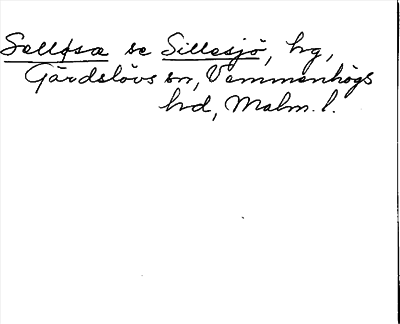 Selløsæ se Sillesjö, hg,
Gärdslövs sn, Vemmenhögs
hd, Malm. l.